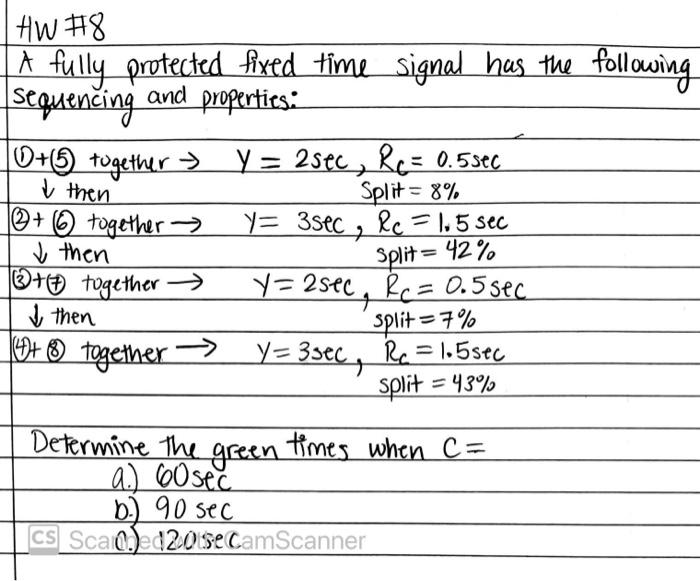 HW #8
A fully protected fixed time signal has the following
sequencing and properties:
①+⑤ together → Y = 2sec, Rc = 0.5sec
↓ then Split = 8%
②+⑥ together → Y = 3sec, Rc = 1.5 sec
↓ then split = 42%
③+⑦ together → Y = 2sec, Rc = 0.5sec
↓ then split = 7%
④+⑧ together → Y = 3sec, Rc = 1.5sec
split = 43%
Determine the green times when C =
a.) 60sec
b.) 90 sec
c.) 120sec
CS Scanned with CamScanner